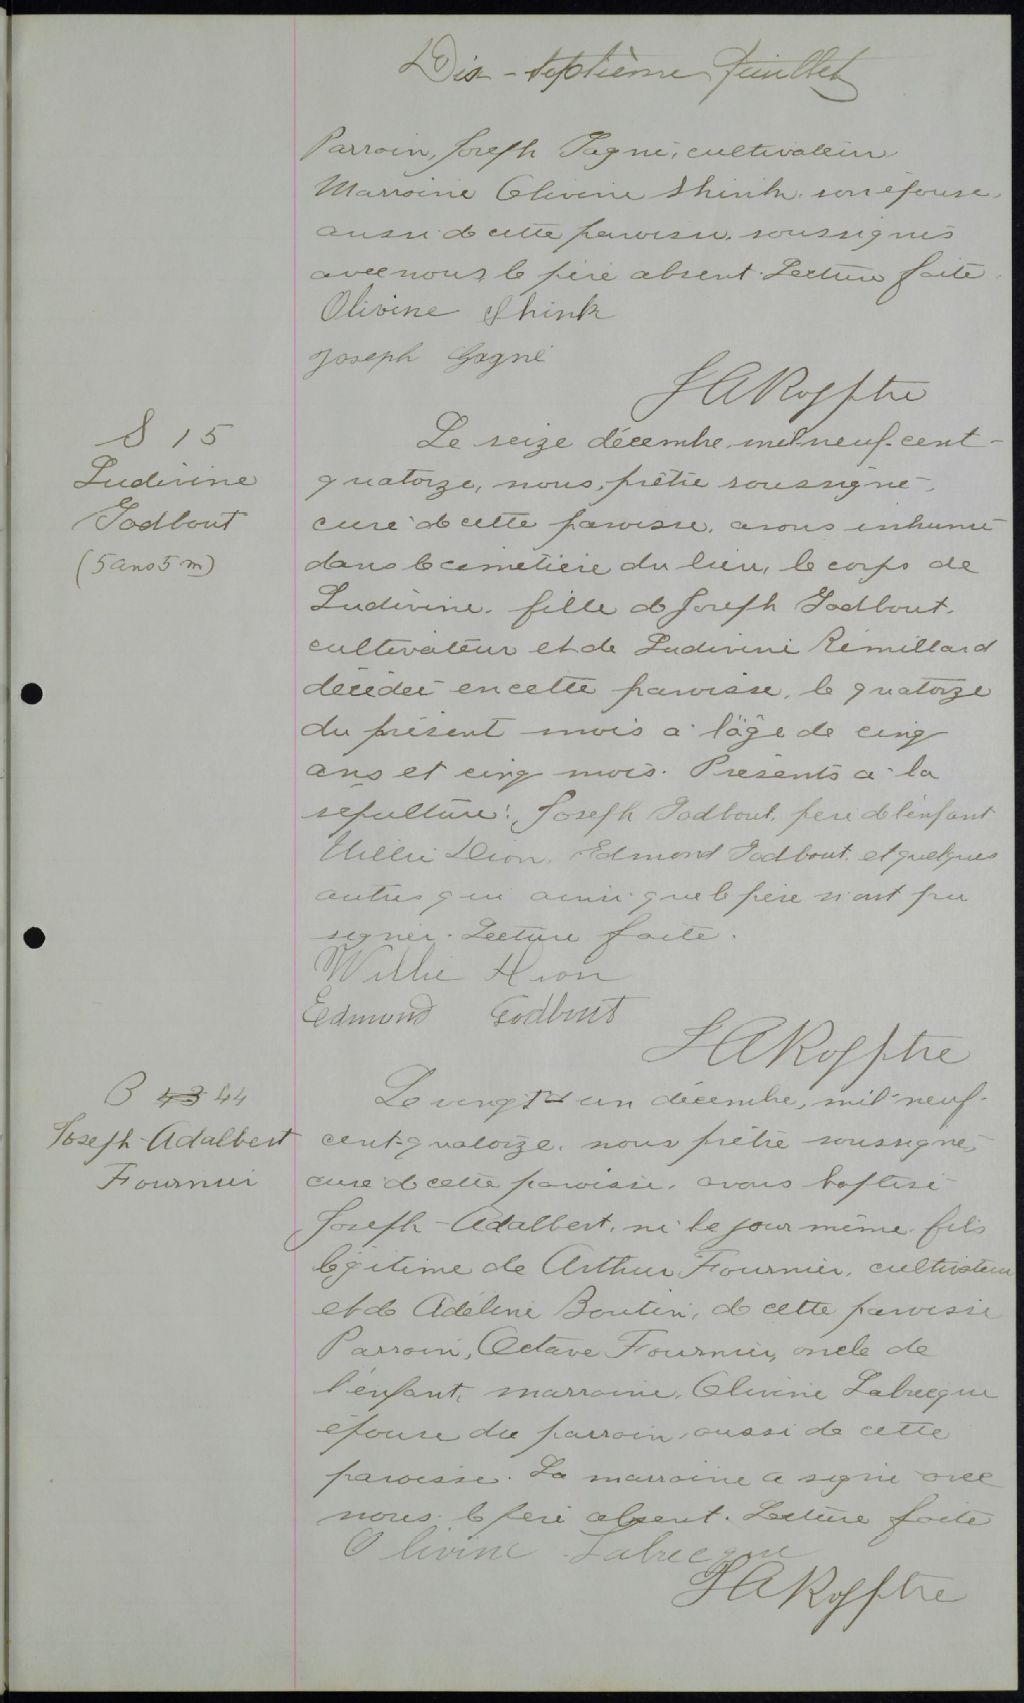 Dix-septième feuillet
Parrain, Joseph Gagné, cultivateur
Marraine Olivine Shink, son épouse,
aussi de cette paroisse, soussignés
avec nous, le père absent. Lecture faite.
Olivine Shink
Joseph Gagné
J A Roy ptre
S 15
Ludivine
Godbout
(5 ans 5 m)
Le seize décembre, mil-neuf-cent-
quatorze, nous, prêtre soussigné,
curé de cette paroisse, avons inhumé
dans le cimetière du lieu, le corps de
Ludivine, fille de Joseph Godbout,
cultivateur et de Ludivine Rémillard
décédée en cette paroisse, le quatorze
du présent mois à l'âge de cinq
ans et cinq mois. Présents à la
sépulture: Joseph Godbout, père de l'enfant
Willie Dion, Edmond Godbout, et quelques
autres qui ainsi que le père n'ont pu
signer. Lecture faite.
Willie Dion
Edmond Godbout
J A Roy ptre
B 43 44
Joseph-Adalbert
Fournier
Le vingt et un décembre, mil-neuf-
cent-quatorze, nous prêtre soussigné,
curé de cette paroisse, avons baptisé
Joseph-Adalbert, né le jour même, fils
légitime de Arthur Fournier, cultivateur
et de Adéline Boutin, de cette paroisse
Parrain, Octave Fournier, oncle de
l'enfant, marraine, Olivine Labrecque
épouse du parrain, aussi de cette
paroisse. La marraine a signé avec
nous, le père absent. Lecture faite
Olivine Labrecque
J A Roy ptre